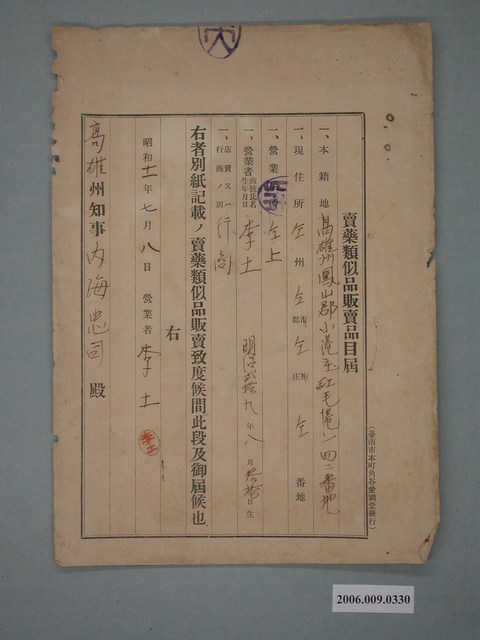 賣藥類似品販賣品目屆
(臺南市本町角谷愛國堂發行)
一、本籍地 高雄州鳳山郡小港庄紅毛港一四二番地
一、現住所 仝州仝市郡仝街庄仝番地
一、營業所 仝上
一、營業者商號氏名生年月日 李土 明治弐拾九年八月参拾日生
一、店賣又ハ行商ノ別 行商
右者別紙記載ノ賣藥類似品販賣致度候間此段及御屆候也
右
昭和十一年七月八日 營業者 李土
高雄州知事內海忠司殿
2006.009.0330